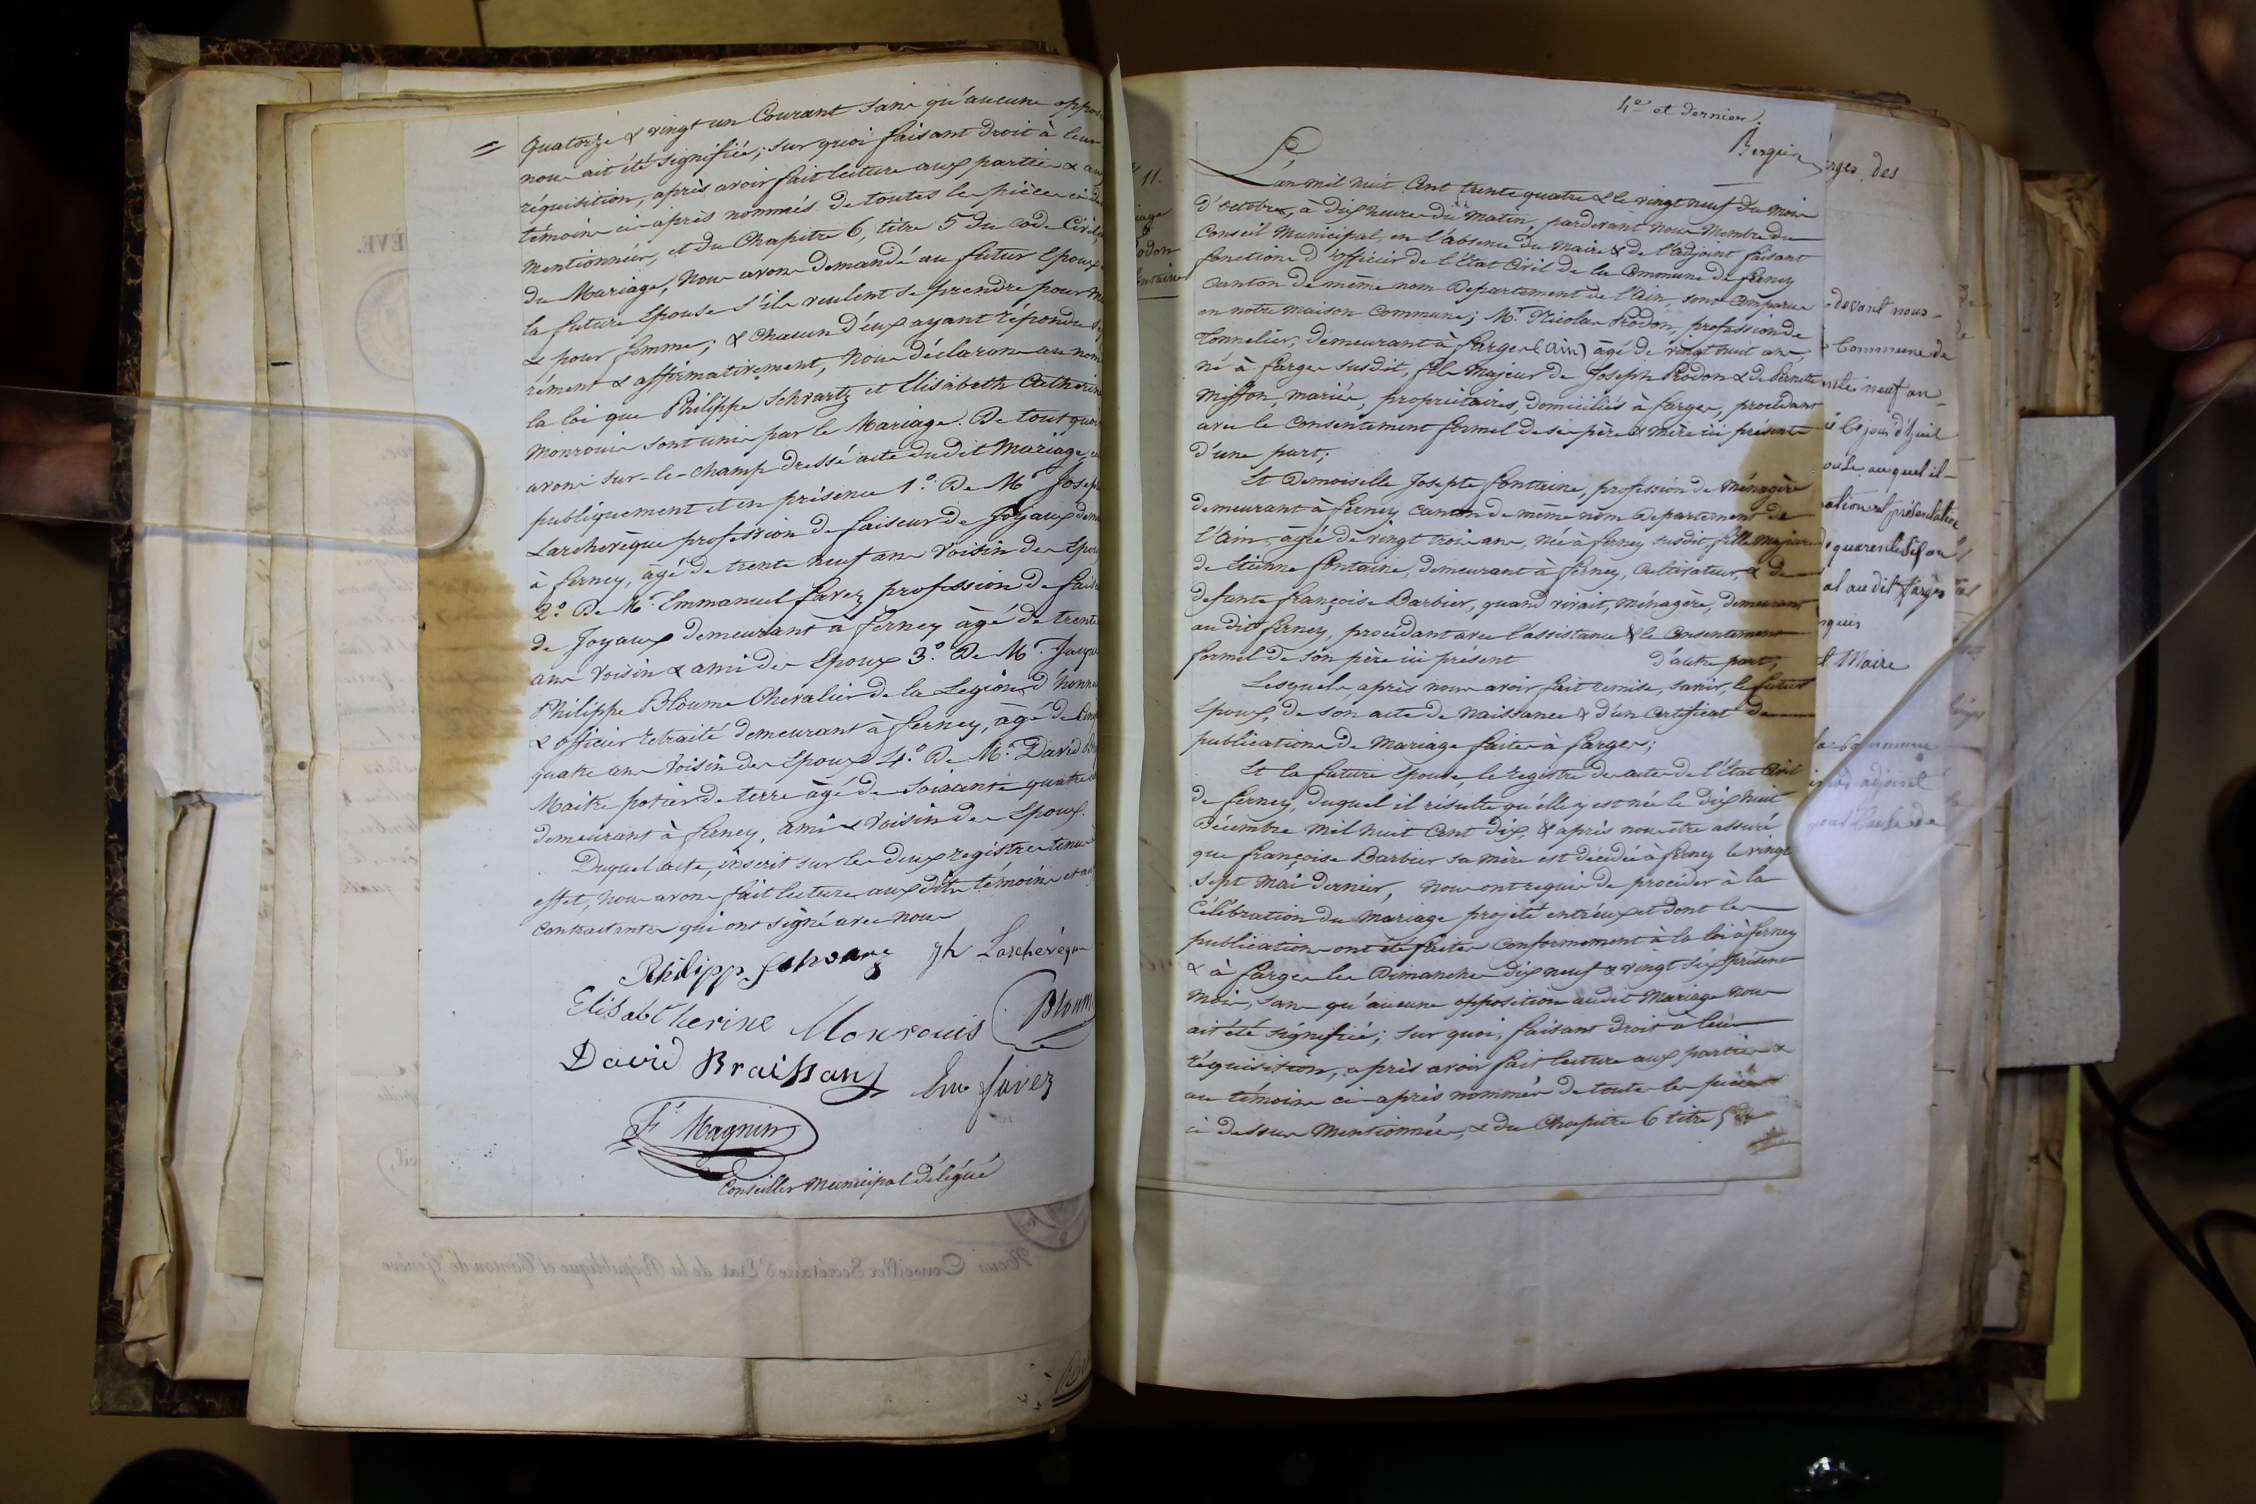 quatorze & vingt un Courant sans qu'aucune oppos
nous ait été signifiée; sur quoi faisant droit à leur
réquisition, après avoir fait lecture aux parties & aux
témoins ci-après nommés de toutes les pièces ci-de
mentionnées, et du Chapitre 6, titre 5 du Code Civil,
du Mariage, Nous avons demandé au futur Epoux
la future Epouse s'ils veulent se prendre pour m
& pour femme; & Chacun d'eux ayant répondu s
rément & affirmativement, Nous déclarons au nom
la loi que Philippe Schvartz et Elisabeth Catherine
Monrouis sont unis par le Mariage. De tout quoi
avons sur-le-champ dressé acte dudit Mariage,
publiquement et en présence 1.° De Mr Joseph
Larchevêque profession de faiseur de Joyaux dem
à ferney, âgé de trente neuf ans voisin des Epou
2.° De Mr. Emmanuel favez profession de fais
de Joyaux demeurant à ferney âgé de trente
ans voisin & ami des Epoux 3.° De Mr. Jaque
Philippe Bloume Chevalier de la Legion d'honn
& officier retraité demeurant à ferney, âgé de Cin
quatre ans voisin des Epoux 4.° De Mr. David B
Maitre potier de terre âgé de Soixante quatre
demeurant à ferney, ami & voisin des Epoux.
Duquel acte, inscrit sur les deux registres tenus
effet, nous avons fait lecture aux dits témoins et au
Contractants qui ont signé avec nous
Philipp Schvarz Jh Larchevêque
Elisabt Cherine Monrouis Bloume
David Braissant Em favez
Fs Magnin
Conseiller Municipal délégué
4e. et dernier.
Berguin
11.
L'an mil huit Cent trente quatre & le vingt neuf du mois
d'octobre, à dix heures du Matin, pardevant nous Membre du
Conseil Municipal, en l'absence du Maire & de l'adjoint faisant
fonctions d'officier de l'état Civil de la Commune de ferney
Canton de même nom Departement de l'Ain, sont Comparus
en notre maison Commune; Mr. Nicolas Prodon, profession de
Tonnelier, demeurant à farges (Ain) âgé de vingt huit ans,
né à farges susdit, fils Majeur de Joseph Prodon & de Pernette
Misson mariés, propriétaires, domiciliés à farges, procédant
avec le Consentement formel de ses père & mère ici présents
d'une part;
Et Demoiselle Josepte fontaine, profession de Ménagère
demeurant à ferney Canton de même nom Departement de
l'Ain, âgée de vingt trois ans, née à ferney susdit, fille majeure
de Etienne fontaine, demeurant à ferney, Cultivateur, & de
defunte françoise Barbier, quand vivait, Ménagère, demeurant
au dit ferney, procédant avec l'assistance & le Consentement
formel de son père ici présent d'autre part;
Lesquels, après nous avoir fait remise, savoir, le futur
Epoux, de son acte de Naissance & d'un Certificat de
publications de Mariage faites à farges;
Et la future Epouse, le registre des actes de l'état Civil
de ferney, duquel il résulte qu'elle y est née le dix huit
Décembre mil huit Cent dix, & après nous être assuré
que françoise Barbier sa mère est décédée à ferney le vingt
sept mai dernier, nous ont requis de procéder à la
Célébration du mariage projeté entr'eux et dont les
publications ont été faites Conformement à la loi à ferney
& à farges les Dimanches dix neuf & vingt six présent
Mois, sans qu'aucune opposition audit Mariage nous
ait été signifiée; sur quoi, faisant droit à leur
réquisition, après avoir fait lecture aux parties &
aux témoins ci-après nommés de toutes les pièces
ci dessus Mentionnées, & du Chapitre 6 titre 5 du